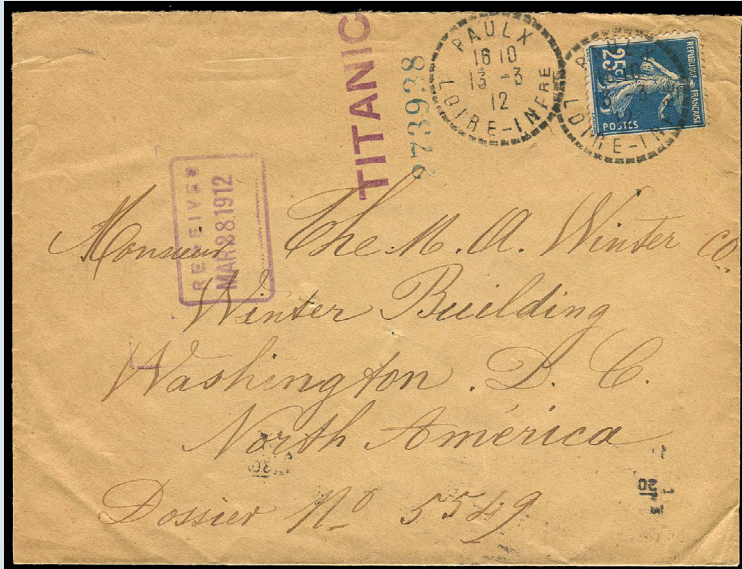 TITANIC
273938
PAULX
16 10
13 -3
12
LOIRE-INFRE
25c
REPUBLIQUE FRANCAISE
POSTES
RECEIVED
MAR 28 1912
Monsieur The M. A. Winter Co
Winter Building
Washington. D. C.
North América
Dossier No 5549